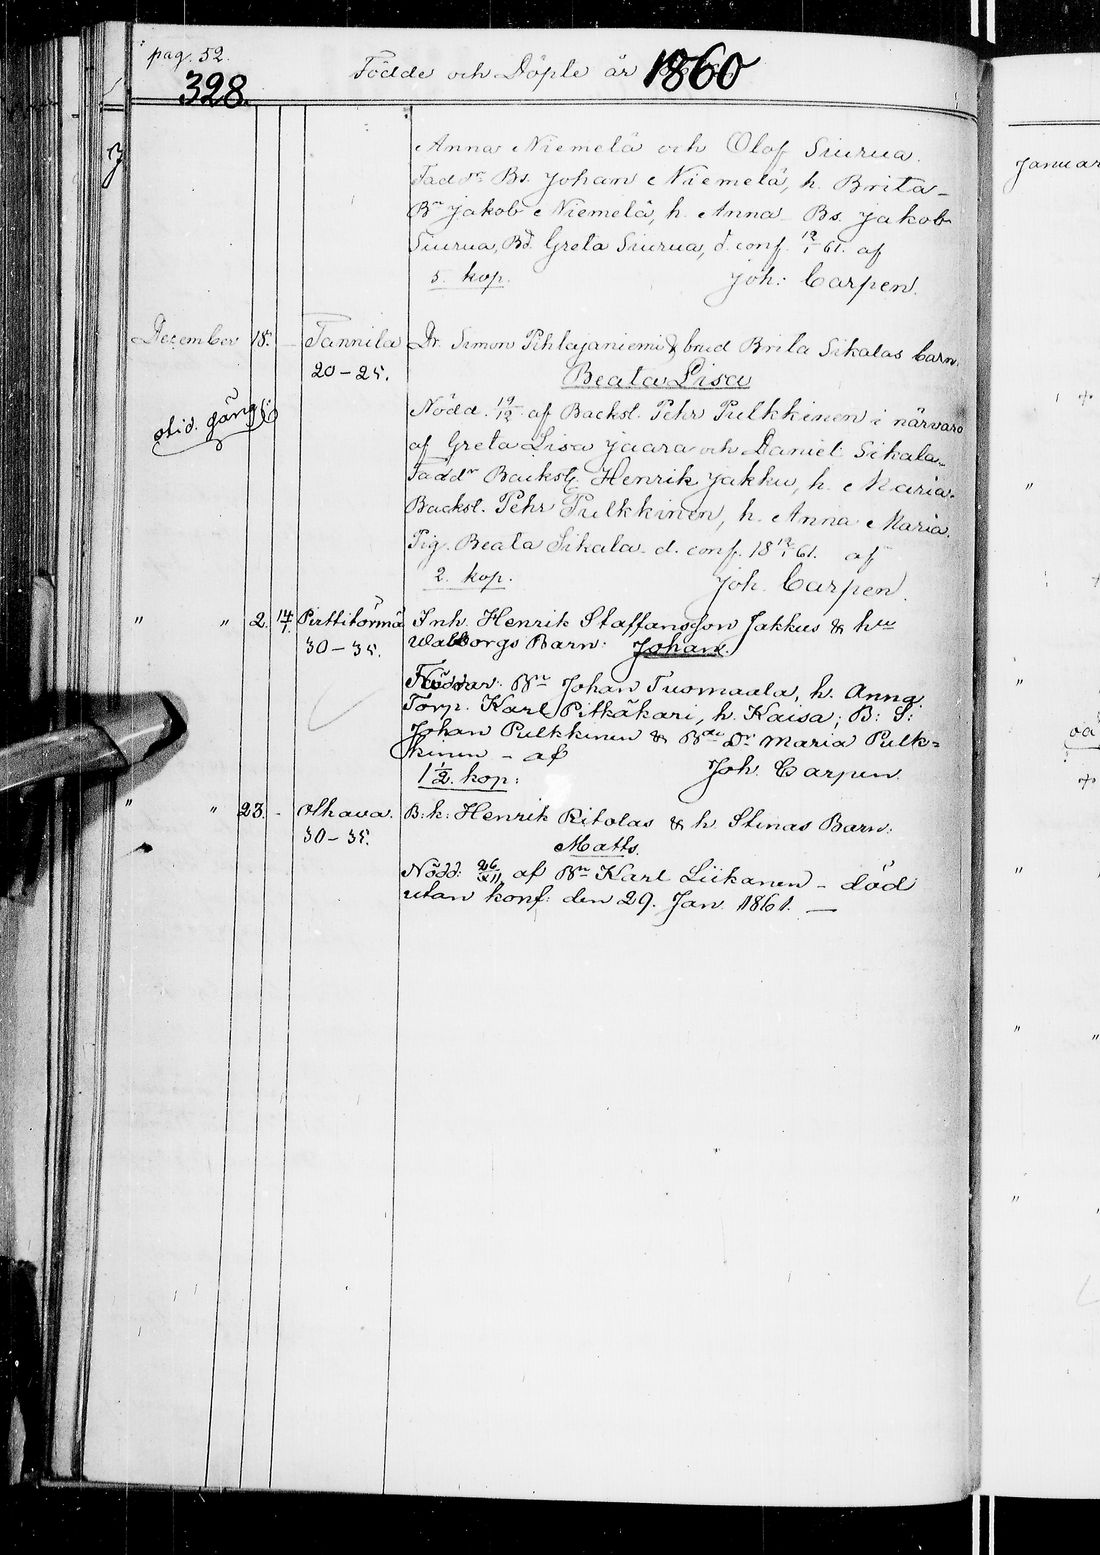 pag. 52.
328.
Födde och Döpte år 1860
Anna Niemelä och Olof Siurua.
Faddr Bs. Johan Niemelä, h. Brita
Bn Jakob Niemelä, h. Anna Bs. Jakob
Siurua, Bd. Greta Siurua, d. conf. 12/1 61. af
5. kop. Joh: Carpen.
December 18. – Tannila Dr. Simon Pihlajaniemi & brud Brita Sikalas barn.
20–25. Beata Lisa
Nödd. 19/12 af Backst. Pehr Pulkkinen i närvaro
af Greta Lisa Jaara och Daniel Sikala.
Faddr Backst. Henrik Jakku, h. Maria.
Backst. Pehr Pulkkinen, h. Anna Maria.
Pig. Beata Sikala d. conf. 18 12/1 61. af
2. kop. Joh. Carpen.
" " 2. 14/1. Pirttitörmä Inh. Henrik Staffansson Jakkus & hu
30–35. Walborgs Barn: Johan.
Faddrar: Bn Johan Tuomaala, h. Anna.
Torp. Karl Pitkäkari, h. Kaisa; B: S:
Johan Pulkkinen & Bde Dr Maria Pulk=
kinen – af
1 1/2. kop: Joh. Carpen.
" " 23. – Olhava. B: k: Henrik Ritolas & h. Stinas Barn:
30–35. Matts.
Nödd: 26/XII af Bn Karl Liikanen – död
utan konf: den 29. Jan. 1861. —
Januar